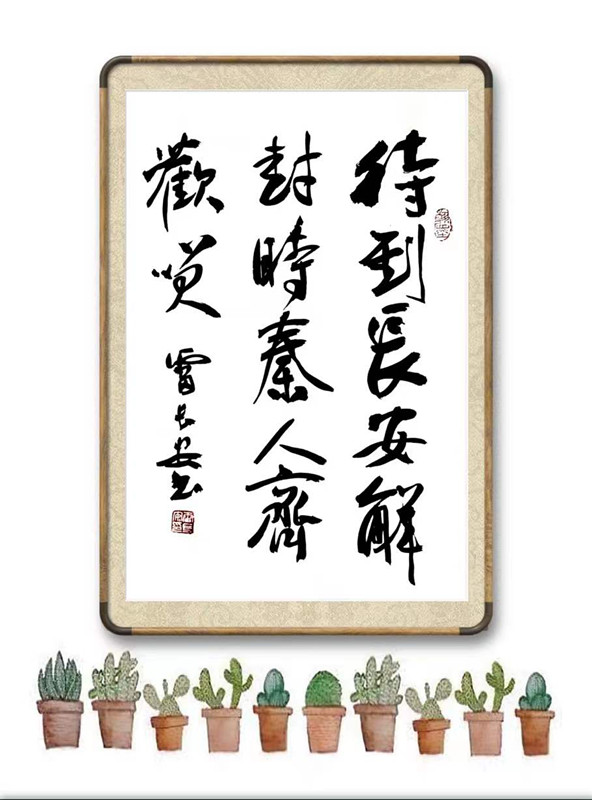 待到長安解
封時秦人齊
歡咲
雷长安书